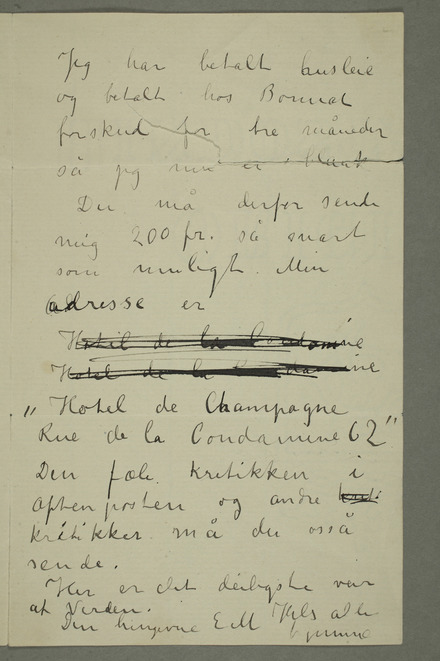 Jeg har betalt husleie
og betalt hos Bonnat
forskud for tre måneder
så jeg nu er blank
Du må derfor sende
mig 200 fr. så snart
som muligt. Min
adresse er
Hotel de la Condamine
Hotel de la Condamine
„Hotel de Champagne
Rue de la Condamine 62"
Den fæle kritikken i
Aftenposten og andre
kritikker må du osså
sende.
Her er det deiligste veir
af Verden.
Din hengivne E M Hils alle
hjemme